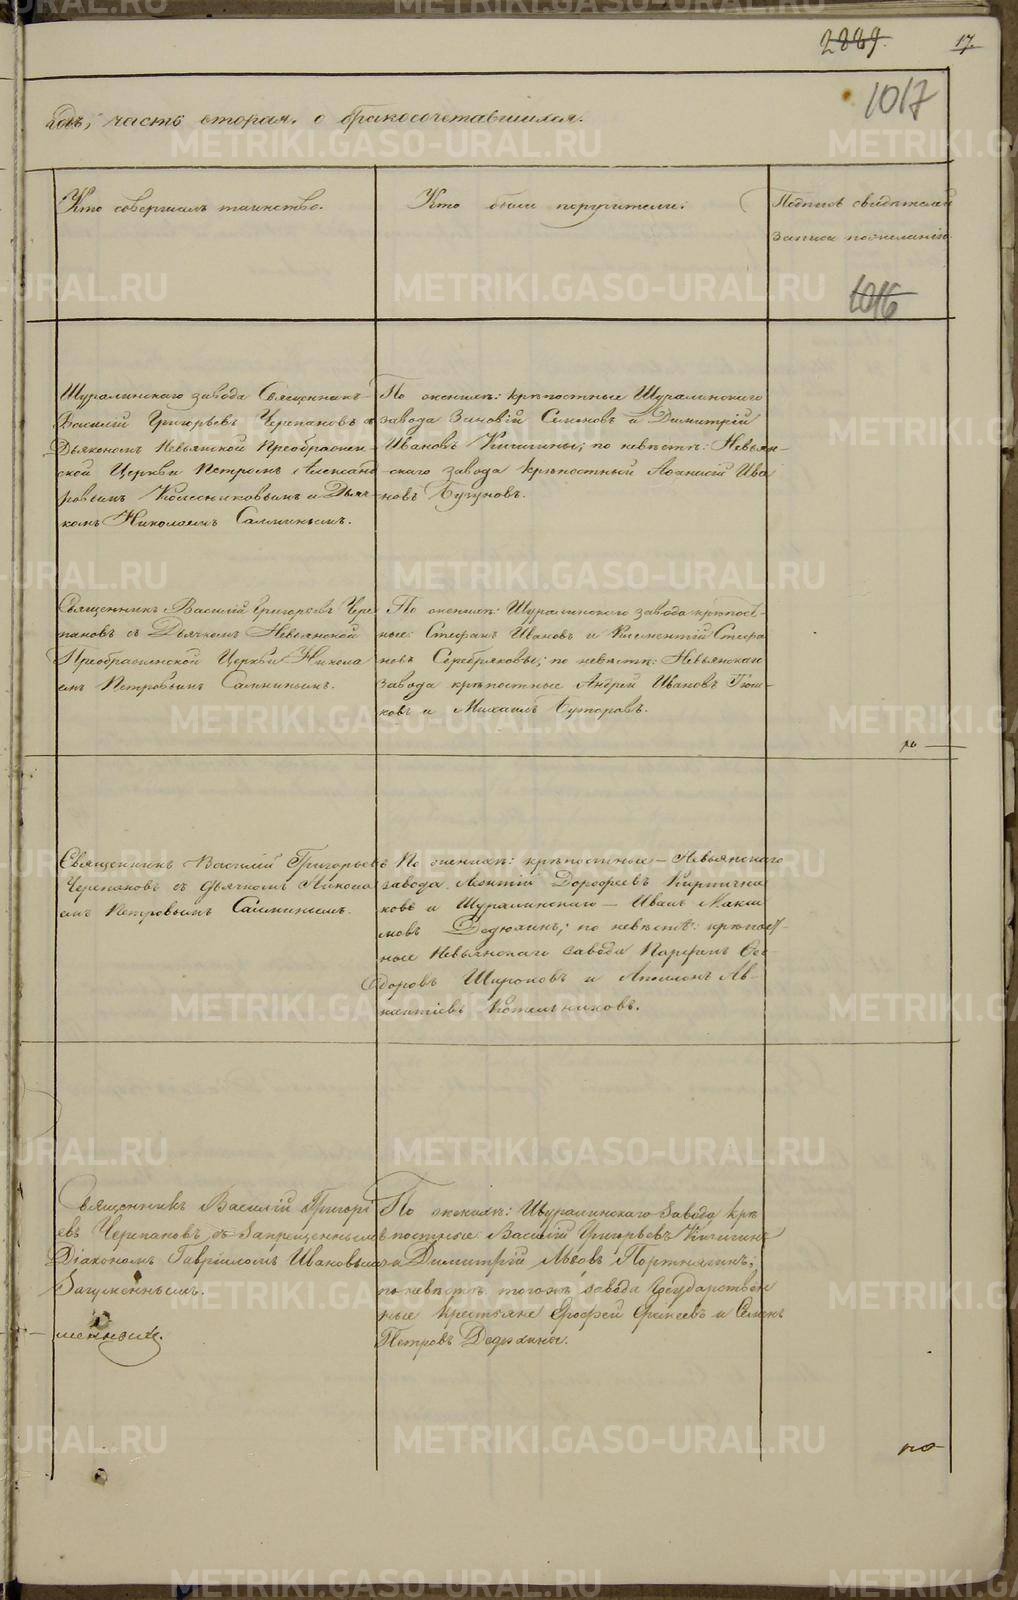 2229.
17.
1017
годъ, часть вторая, о бракосочетавшихся.
Кто совершалъ таинство.
Кто были поручители:
Подпись свидѣтелей
записи по желанію.
1016
Шуралинскаго завода Священникъ
Василій Григорьевъ Черепановъ съ
Дьякономъ Невьянской Преображен-
ской Церкви Петромъ Александ
ровымъ Колесниковымъ и Дьяч-
комъ Николаемъ Салминымъ.
По женихѣ: крѣпостные Шуралинскаго
завода Зиновій Семеновъ и Димитрій
Ивановъ Кичигины; по невѣстѣ: Невьян-
-скаго завода крѣпостный Афанасій Ива
новъ Бугуновъ.
Священникъ Василій Григорьевъ Чере
пановъ съ Дьячкомъ Невьянской
Преображенской Церкви Никола
емъ Петровымъ Салминымъ.
По женихѣ: Шуралинскаго завода крѣпост-
ные: Стефанъ Ивановъ и Климентий Стефа
новъ Серебряковы; по невѣстѣ: Невьянскаго
завода крѣпостные Андрей Ивановъ
ковъ и Михаилъ Буторовъ.
по
Священникъ Василій Григорьевъ
Черепановъ съ Дьячкомъ Никола
емъ Петровымъ Салминымъ.
По женихѣ: крѣпостные – Невьянскаго
завода Леонтій Дорофеевъ Кирпични
ковъ и Шуралинскаго – Иванъ Макси
мовъ Дедюхинъ; по невѣстѣ: крѣпост-
ные Невьянскаго завода Парфенъ Ѳео
доровъ Широковъ и Ав-
Котельниковъ.
Священникъ Василій Григорі
евъ Черепановъ съ Запрещеннымъ
Діакономъ Гавріиломъ Ивановымъ
По женихѣ: Шуралинскаго завода крѣ
постные Василій Григорьевъ Кичигинъ
и Димитрій Львовъ Портнягинъ;
по невѣстѣ тогожъ завода Государствен
ные крестьяне Ерофей и Семенъ
Петровъ Дедюхины.
по
METRIKI.GASO-URAL.RU